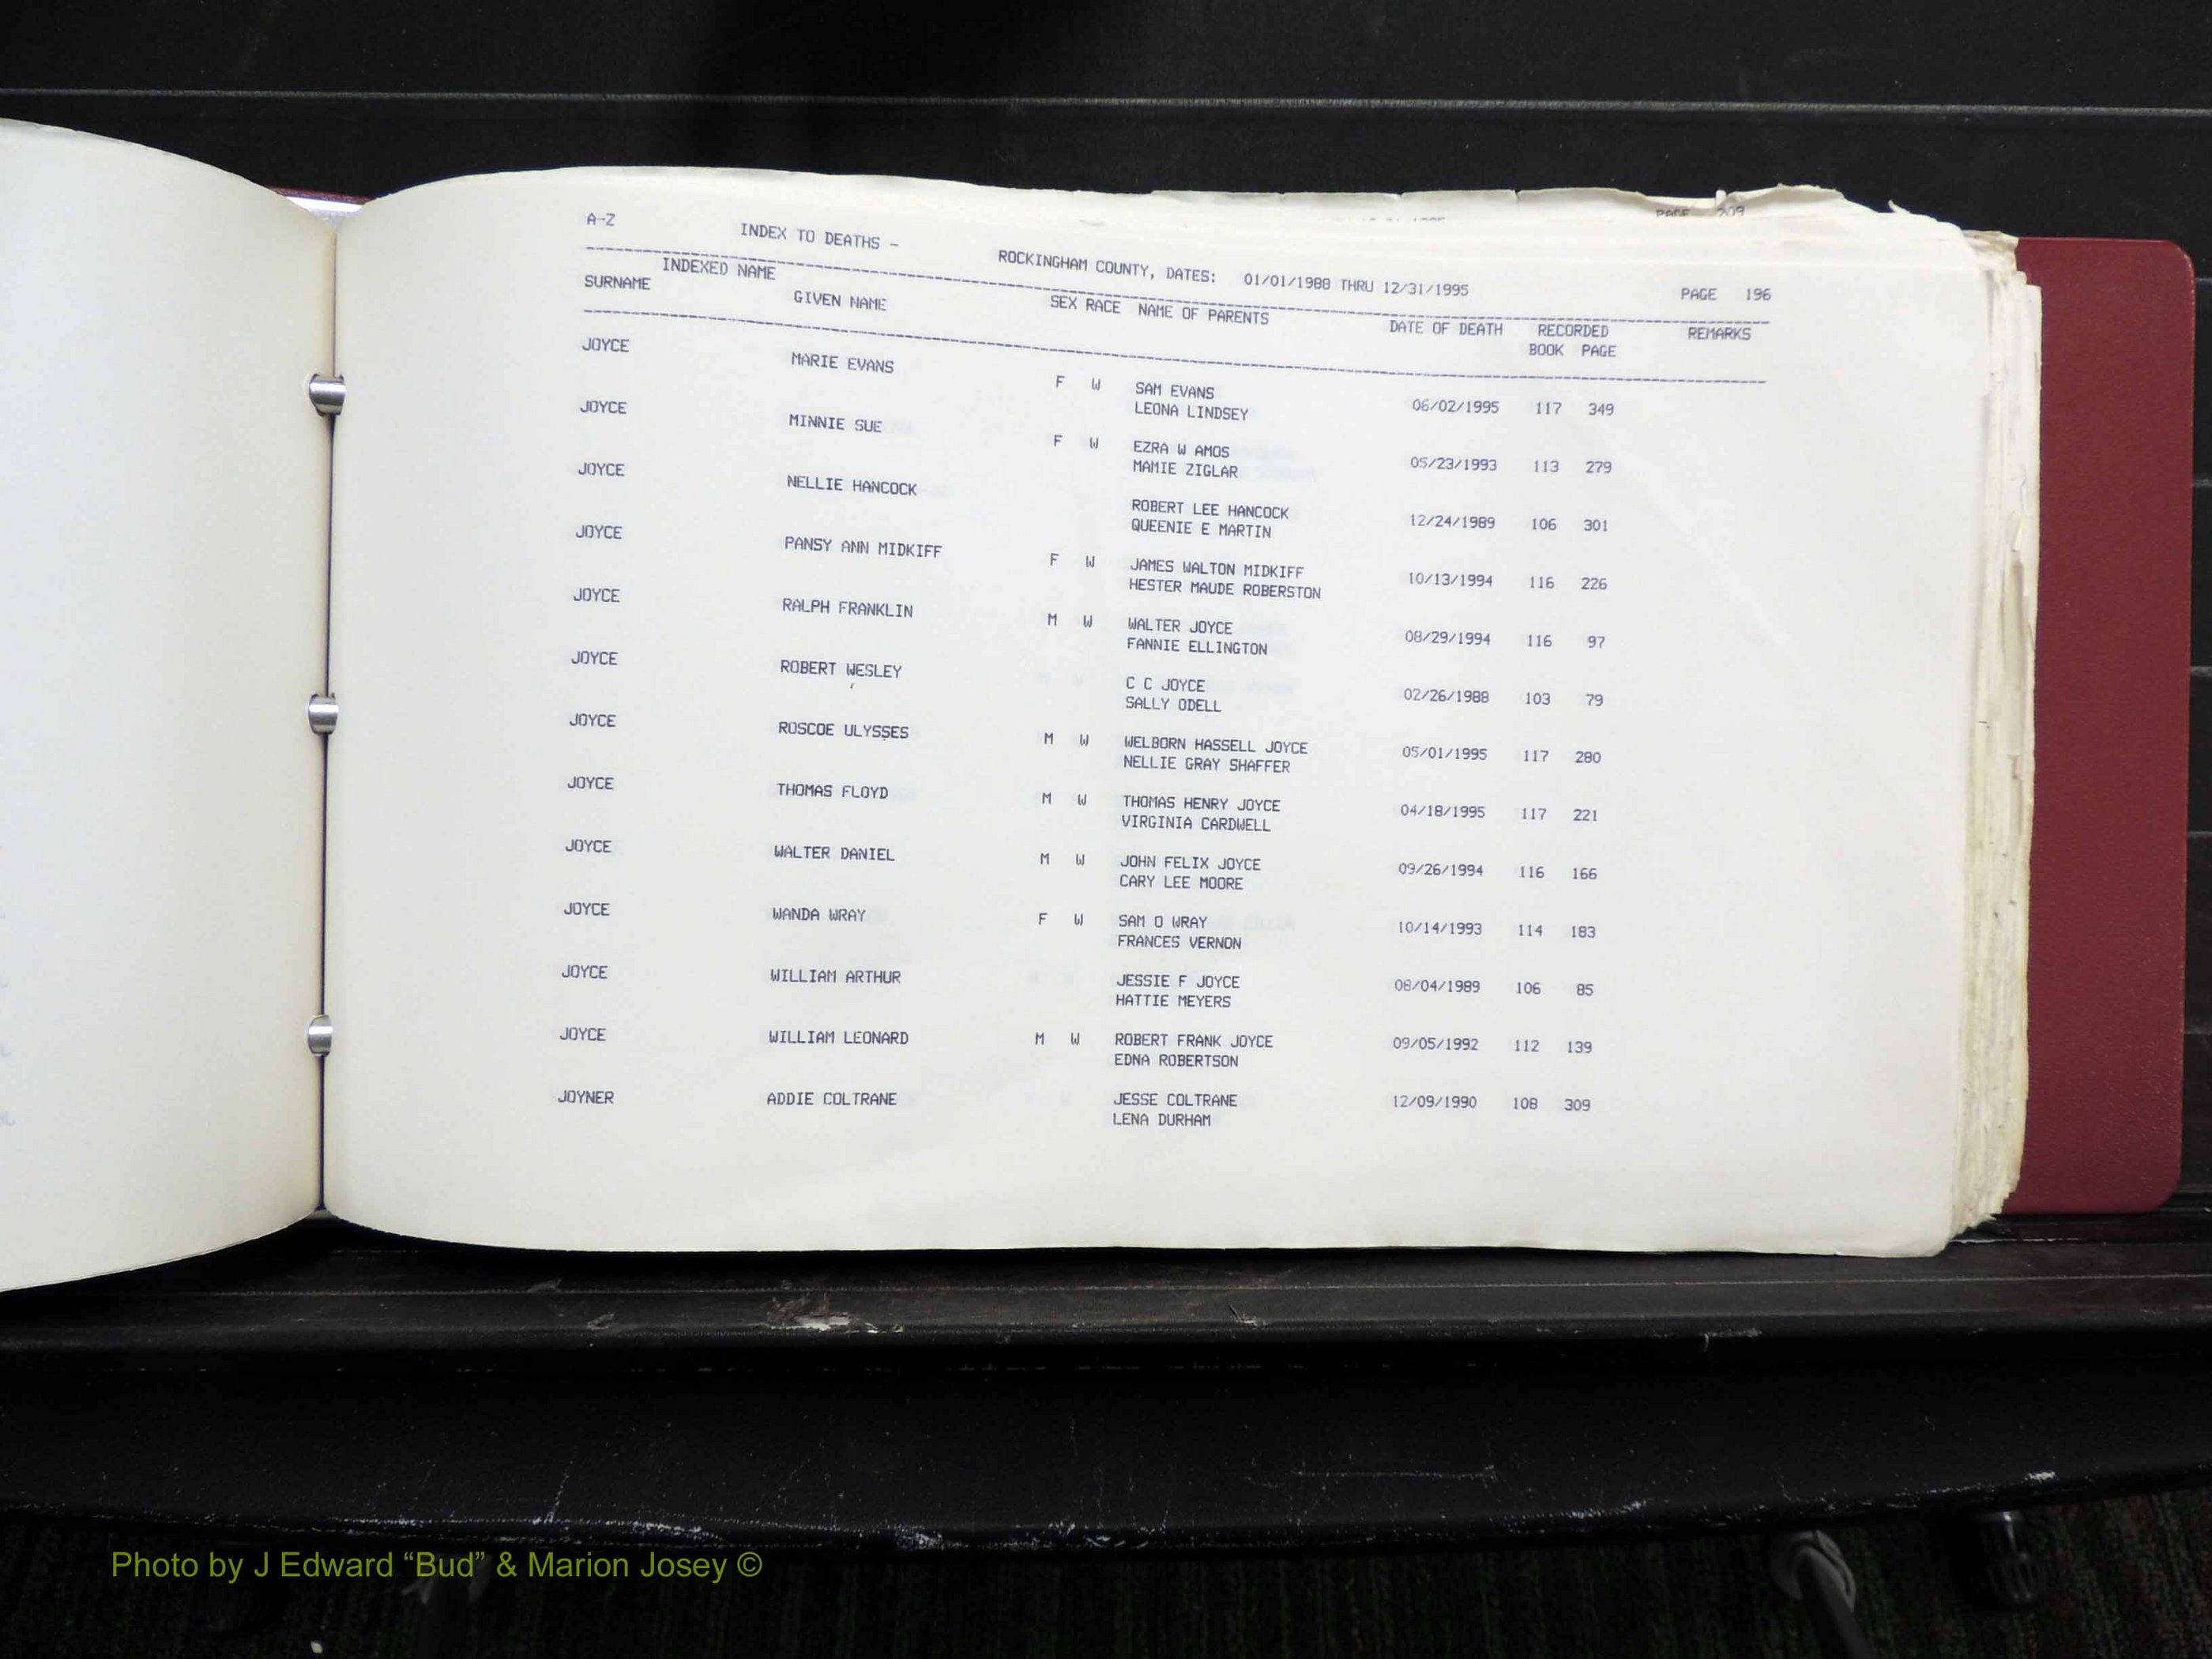 PAGE 209
A-Z INDEX TO DEATHS - ROCKINGHAM COUNTY, DATES: 01/01/1988 THRU 12/31/1995 PAGE 196
INDEXED NAME
SURNAME GIVEN NAME SEX RACE NAME OF PARENTS DATE OF DEATH RECORDED REMARKS
BOOK PAGE
JOYCE MARIE EVANS F W SAM EVANS 06/02/1995 117 349
LEONA LINDSEY
JOYCE MINNIE SUE F W EZRA W AMOS 05/23/1993 113 279
MAMIE ZIGLAR
JOYCE NELLIE HANCOCK ROBERT LEE HANCOCK 12/24/1989 106 301
QUEENIE E MARTIN
JOYCE PANSY ANN MIDKIFF F W JAMES WALTON MIDKIFF 10/13/1994 116 226
HESTER MAUDE ROBERSTON
JOYCE RALPH FRANKLIN M W WALTER JOYCE 08/29/1994 116 97
FANNIE ELLINGTON
JOYCE ROBERT WESLEY C C JOYCE 02/26/1988 103 79
SALLY ODELL
JOYCE ROSCOE ULYSSES M W WELBORN HASSELL JOYCE 05/01/1995 117 280
NELLIE GRAY SHAFFER
JOYCE THOMAS FLOYD M W THOMAS HENRY JOYCE 04/18/1995 117 221
VIRGINIA CARDWELL
JOYCE WALTER DANIEL M W JOHN FELIX JOYCE 09/26/1994 116 166
CARY LEE MOORE
JOYCE WANDA WRAY F W SAM O WRAY 10/14/1993 114 183
FRANCES VERNON
JOYCE WILLIAM ARTHUR JESSIE F JOYCE 08/04/1989 106 85
HATTIE MEYERS
JOYCE WILLIAM LEONARD M W ROBERT FRANK JOYCE 09/05/1992 112 139
EDNA ROBERTSON
JOYNER ADDIE COLTRANE JESSE COLTRANE 12/09/1990 108 309
LENA DURHAM
Photo by J Edward “Bud” & Marion Josey ©